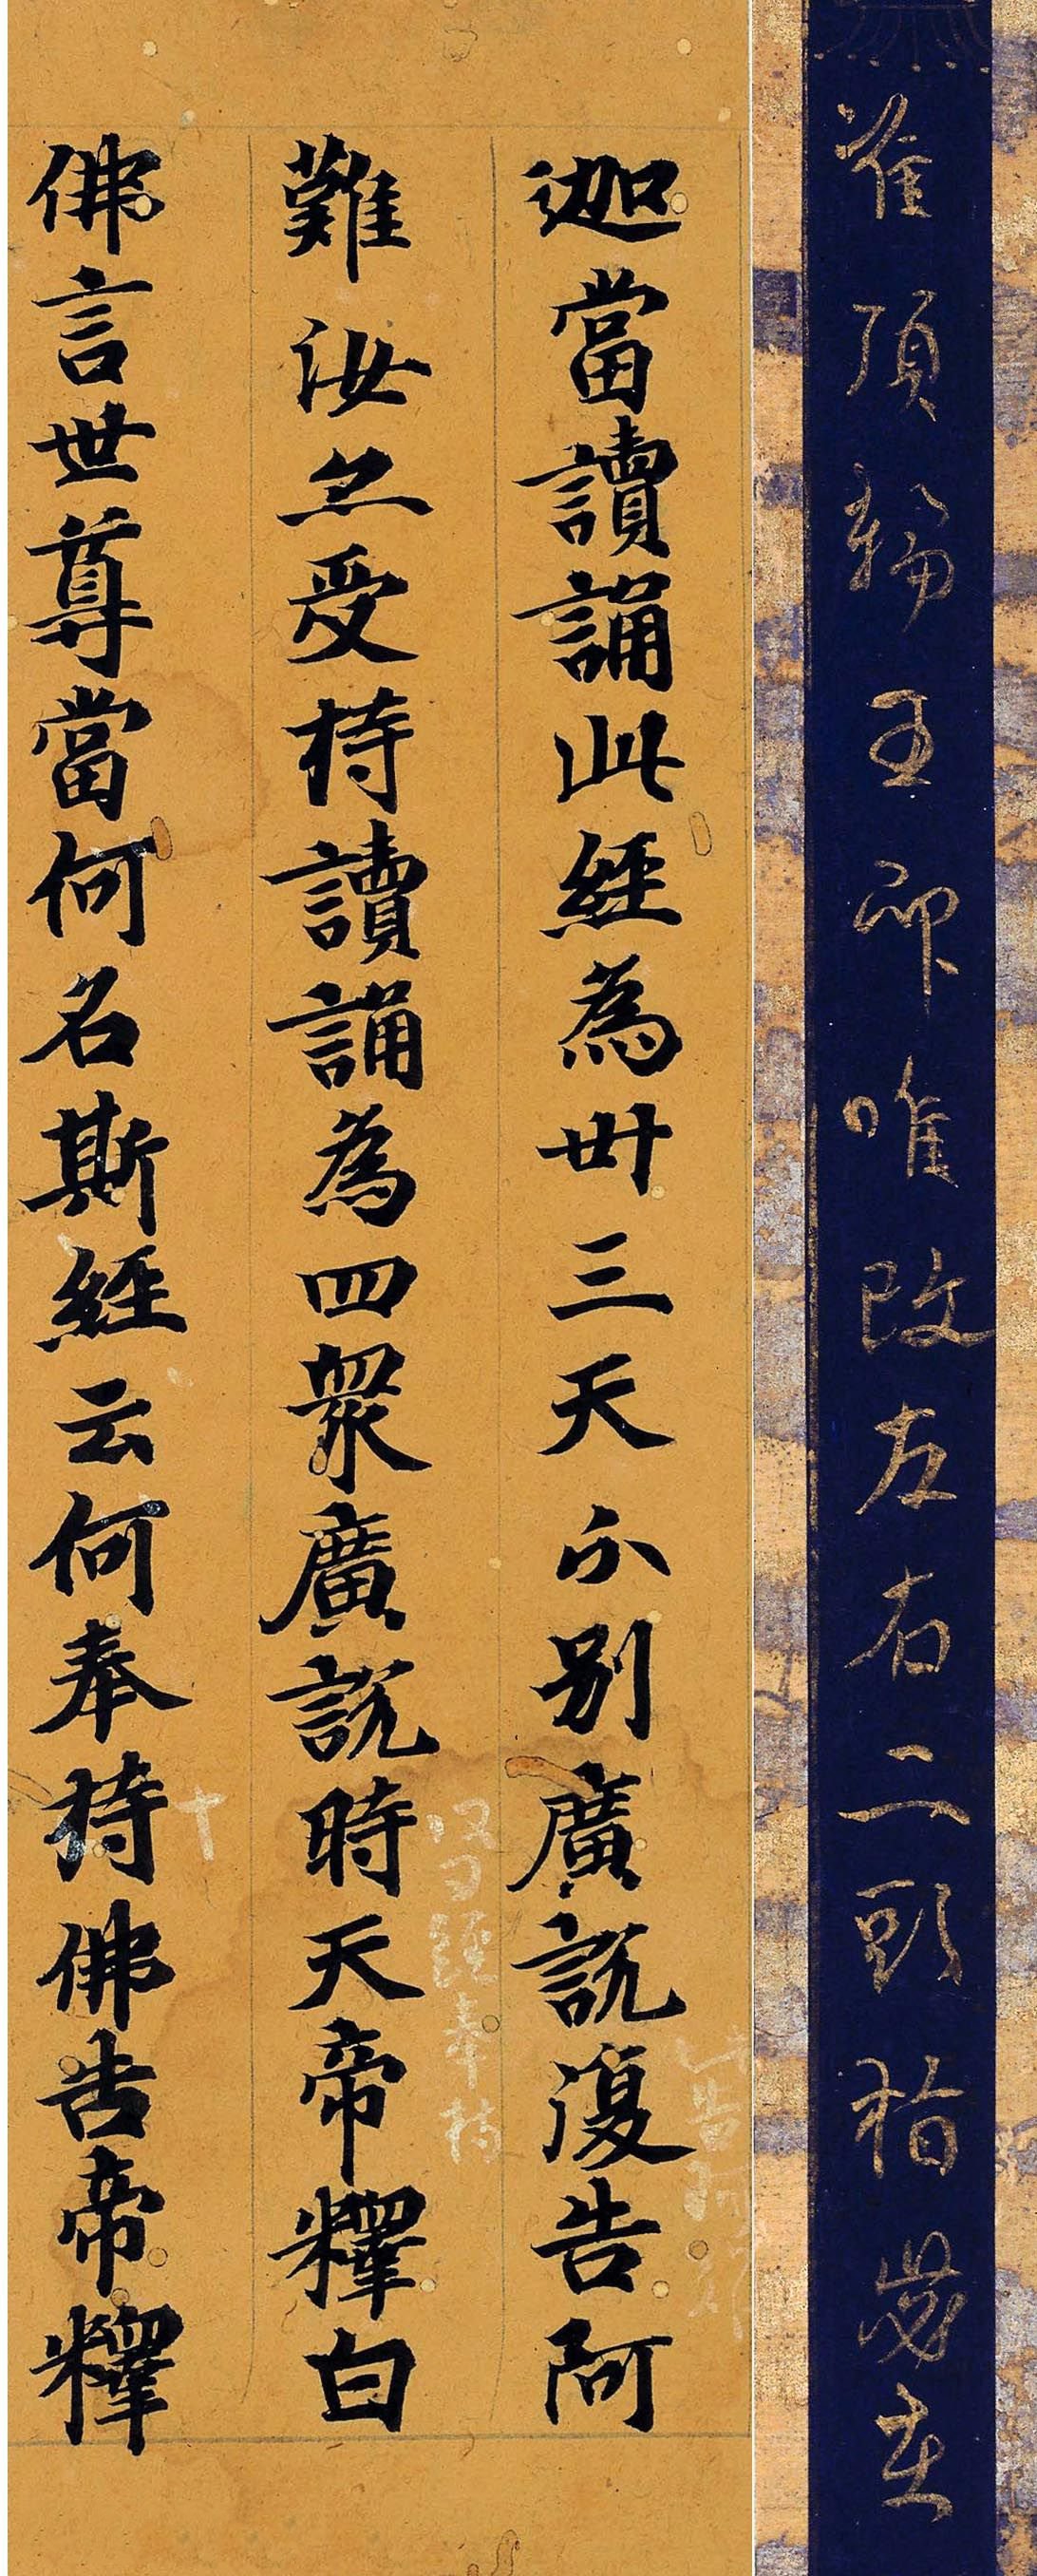 准頂輪王印唯改左右二頭指
迦當讀誦此經為卅三天分別廣說復告阿
難汝亦受持讀誦為四衆廣說時天帝釋白
佛言世尊當何名斯經云何奉持佛告帝釋